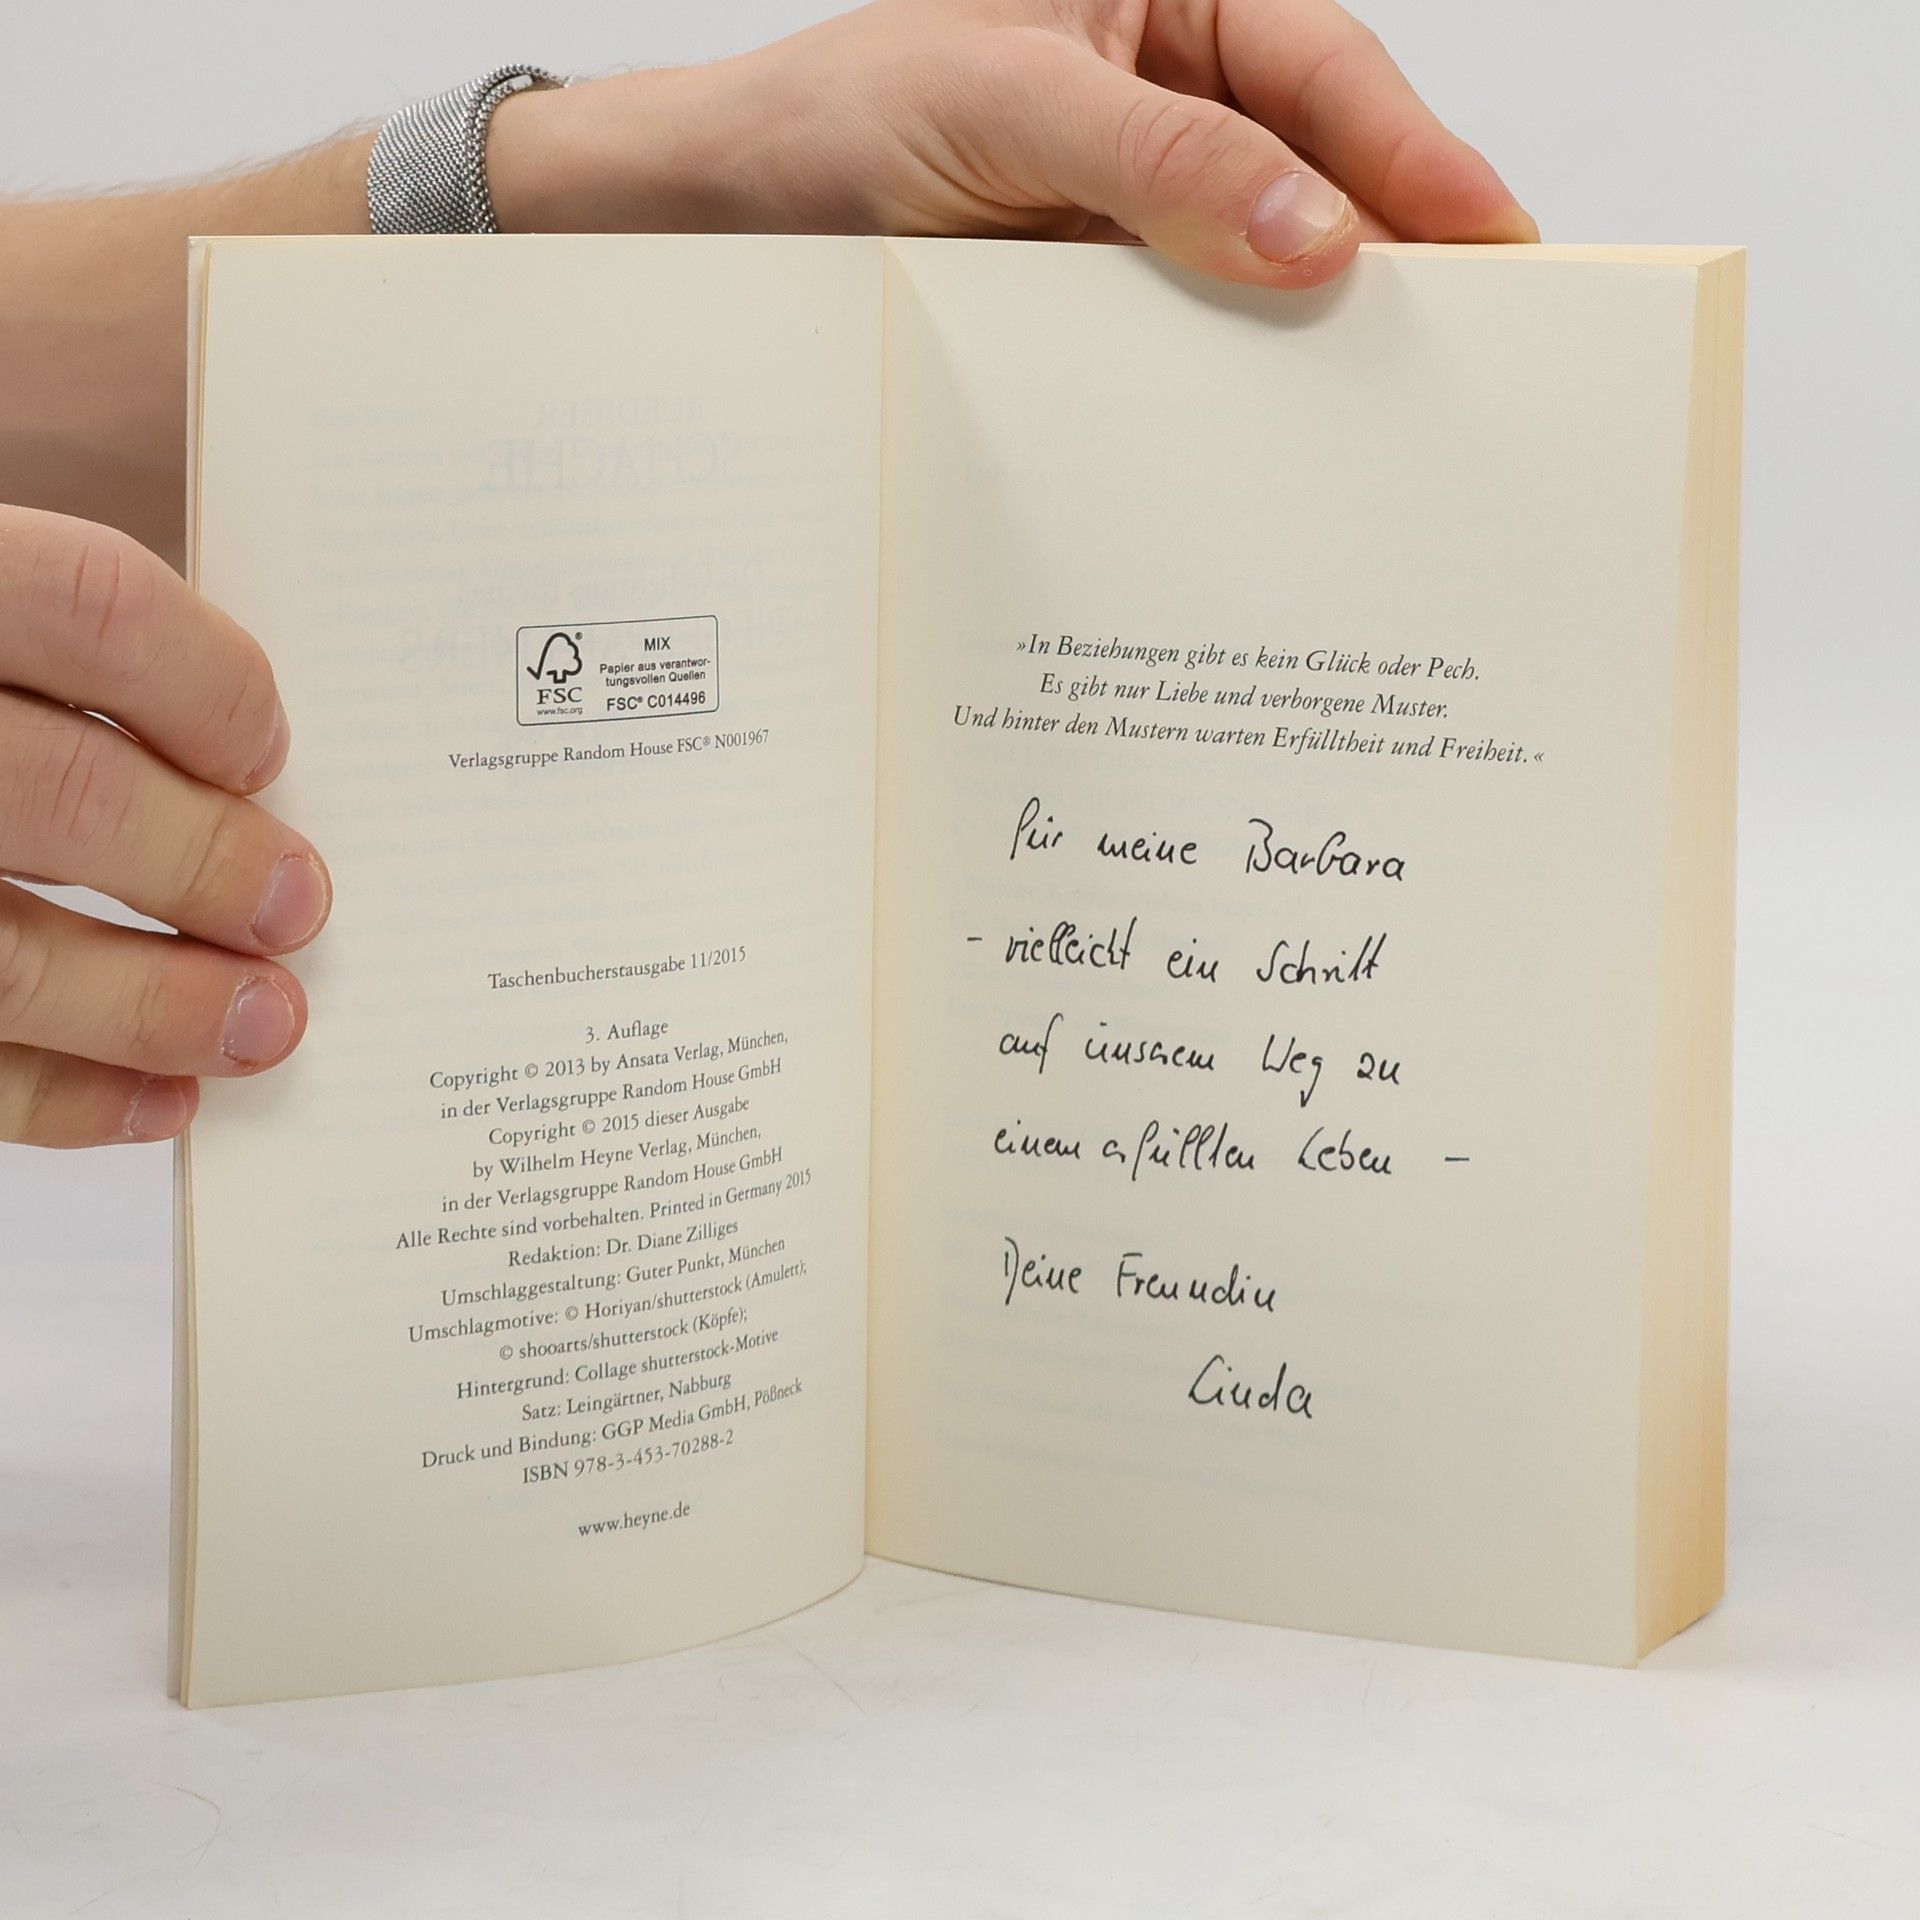 FSC®
www.fsc.org
MIX
Papier aus verantwor-
tungsvollen Quellen
FSC® C014496
Verlagsgruppe Random House FSC® N001967
Taschenbucherstausgabe 11/2015
3. Auflage
Copyright © 2013 by Ansata Verlag, München,
in der Verlagsgruppe Random House GmbH
Copyright © 2015 dieser Ausgabe
by Wilhelm Heyne Verlag, München,
in der Verlagsgruppe Random House GmbH
Alle Rechte sind vorbehalten. Printed in Germany 2015
Redaktion: Dr. Diane Zilliges
Umschlaggestaltung: Guter Punkt, München
Umschlagmotive: © Horiyan/shutterstock (Amulett);
© shooarts/shutterstock (Köpfe);
Hintergrund: Collage shutterstock-Motive
Satz: Leingärtner, Nabburg
Druck und Bindung: GGP Media GmbH, Pößneck
ISBN 978-3-453-70288-2
www.heyne.de
»In Beziehungen gibt es kein Glück oder Pech.
Es gibt nur Liebe und verborgene Muster.
Und hinter den Mustern warten Erfülltheit und Freiheit.«
für meine Barbara
- vielleicht ein Schritt
auf unserem Weg zu
einem erfüllten Leben -
Deine Freundin
Linda